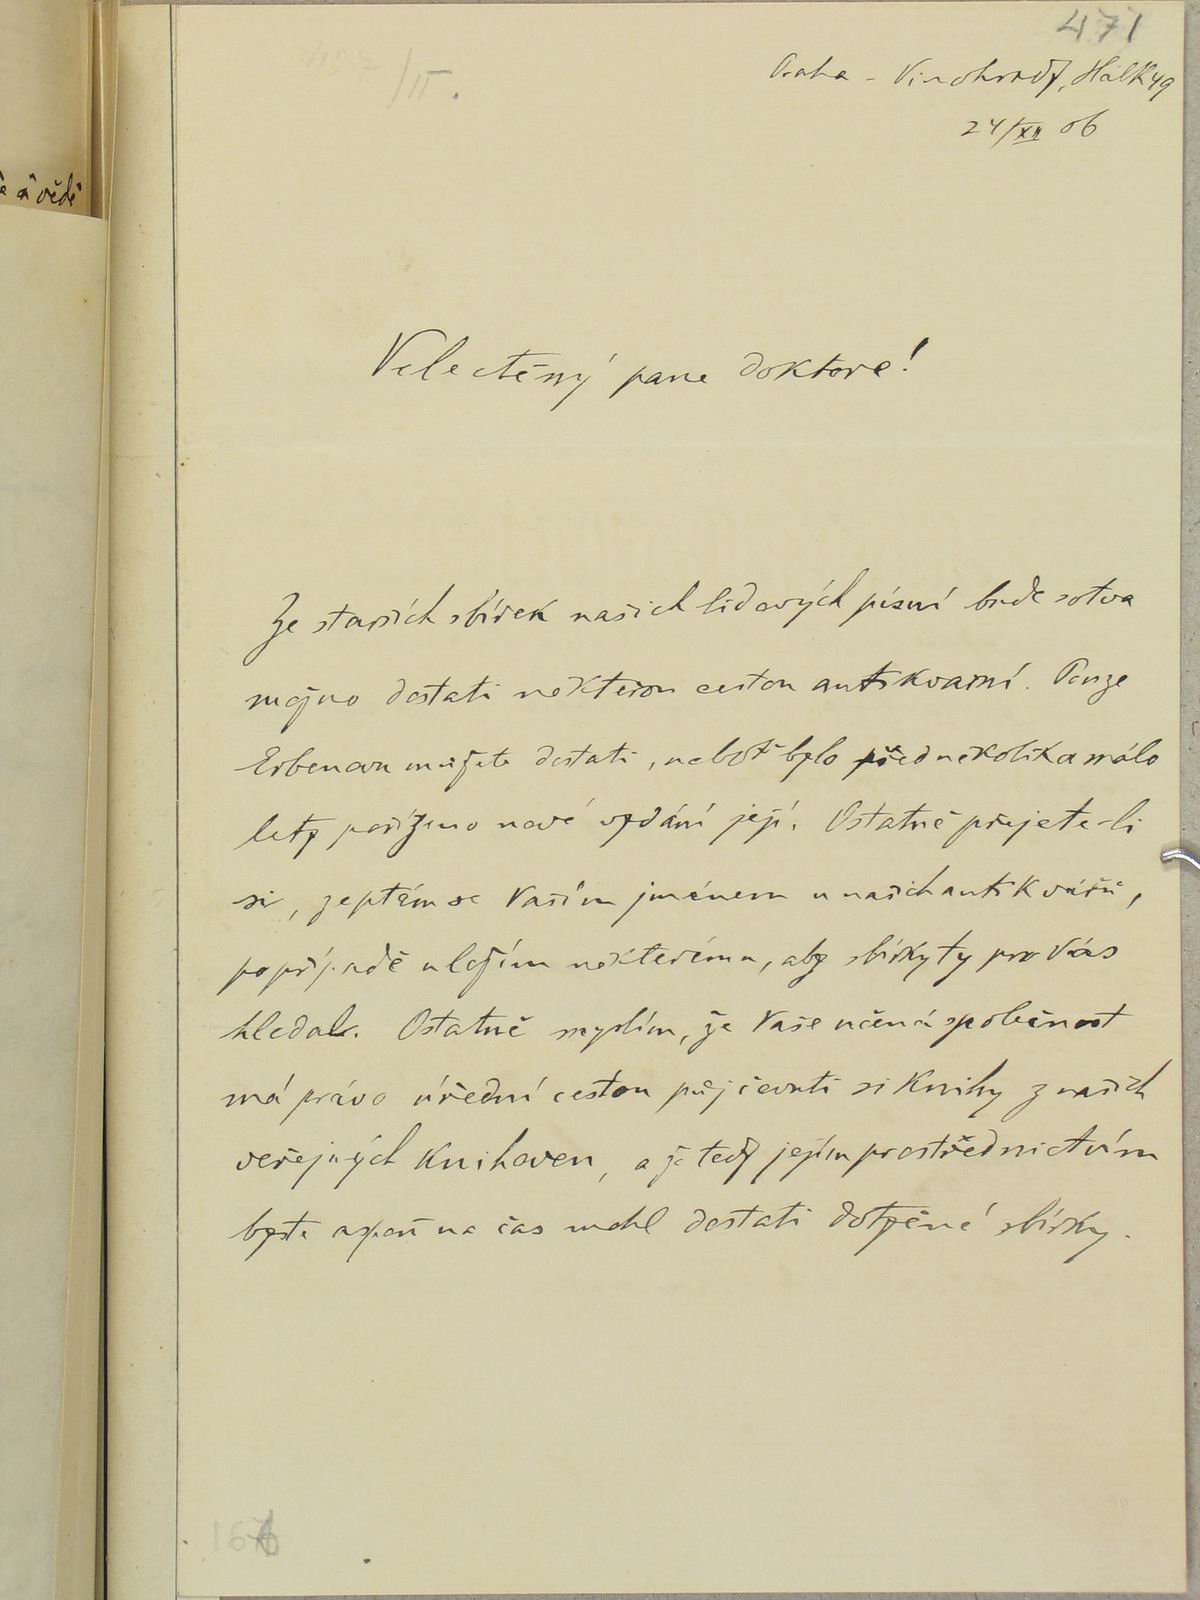 471
/II.
Praha - Vinohrady, Hálk 49
24/XII 06
a vědě
Velectěný pane doktore!
Ze starších sbírek našich lidových písní bude sotva
možno dostati některou cestou antikvarní. Pouze
Erbenovu můžete dostati, neboť bylo před několika málo
lety pořízeno nové vydání její. Ostatně přejete-li
si, zeptám se Vaším jménem u našich antikvářů,
popřípadě uložím některému, aby sbírky ty pro Vás
hledal. Ostatně myslím, že Vaše učená společnost
má právo úřední cestou půjčovati si knihy z našich
veřejných knihoven, a že tedy jejím prostřednictvím
byste aspoň na čas mohl dostati dotčené sbírky.